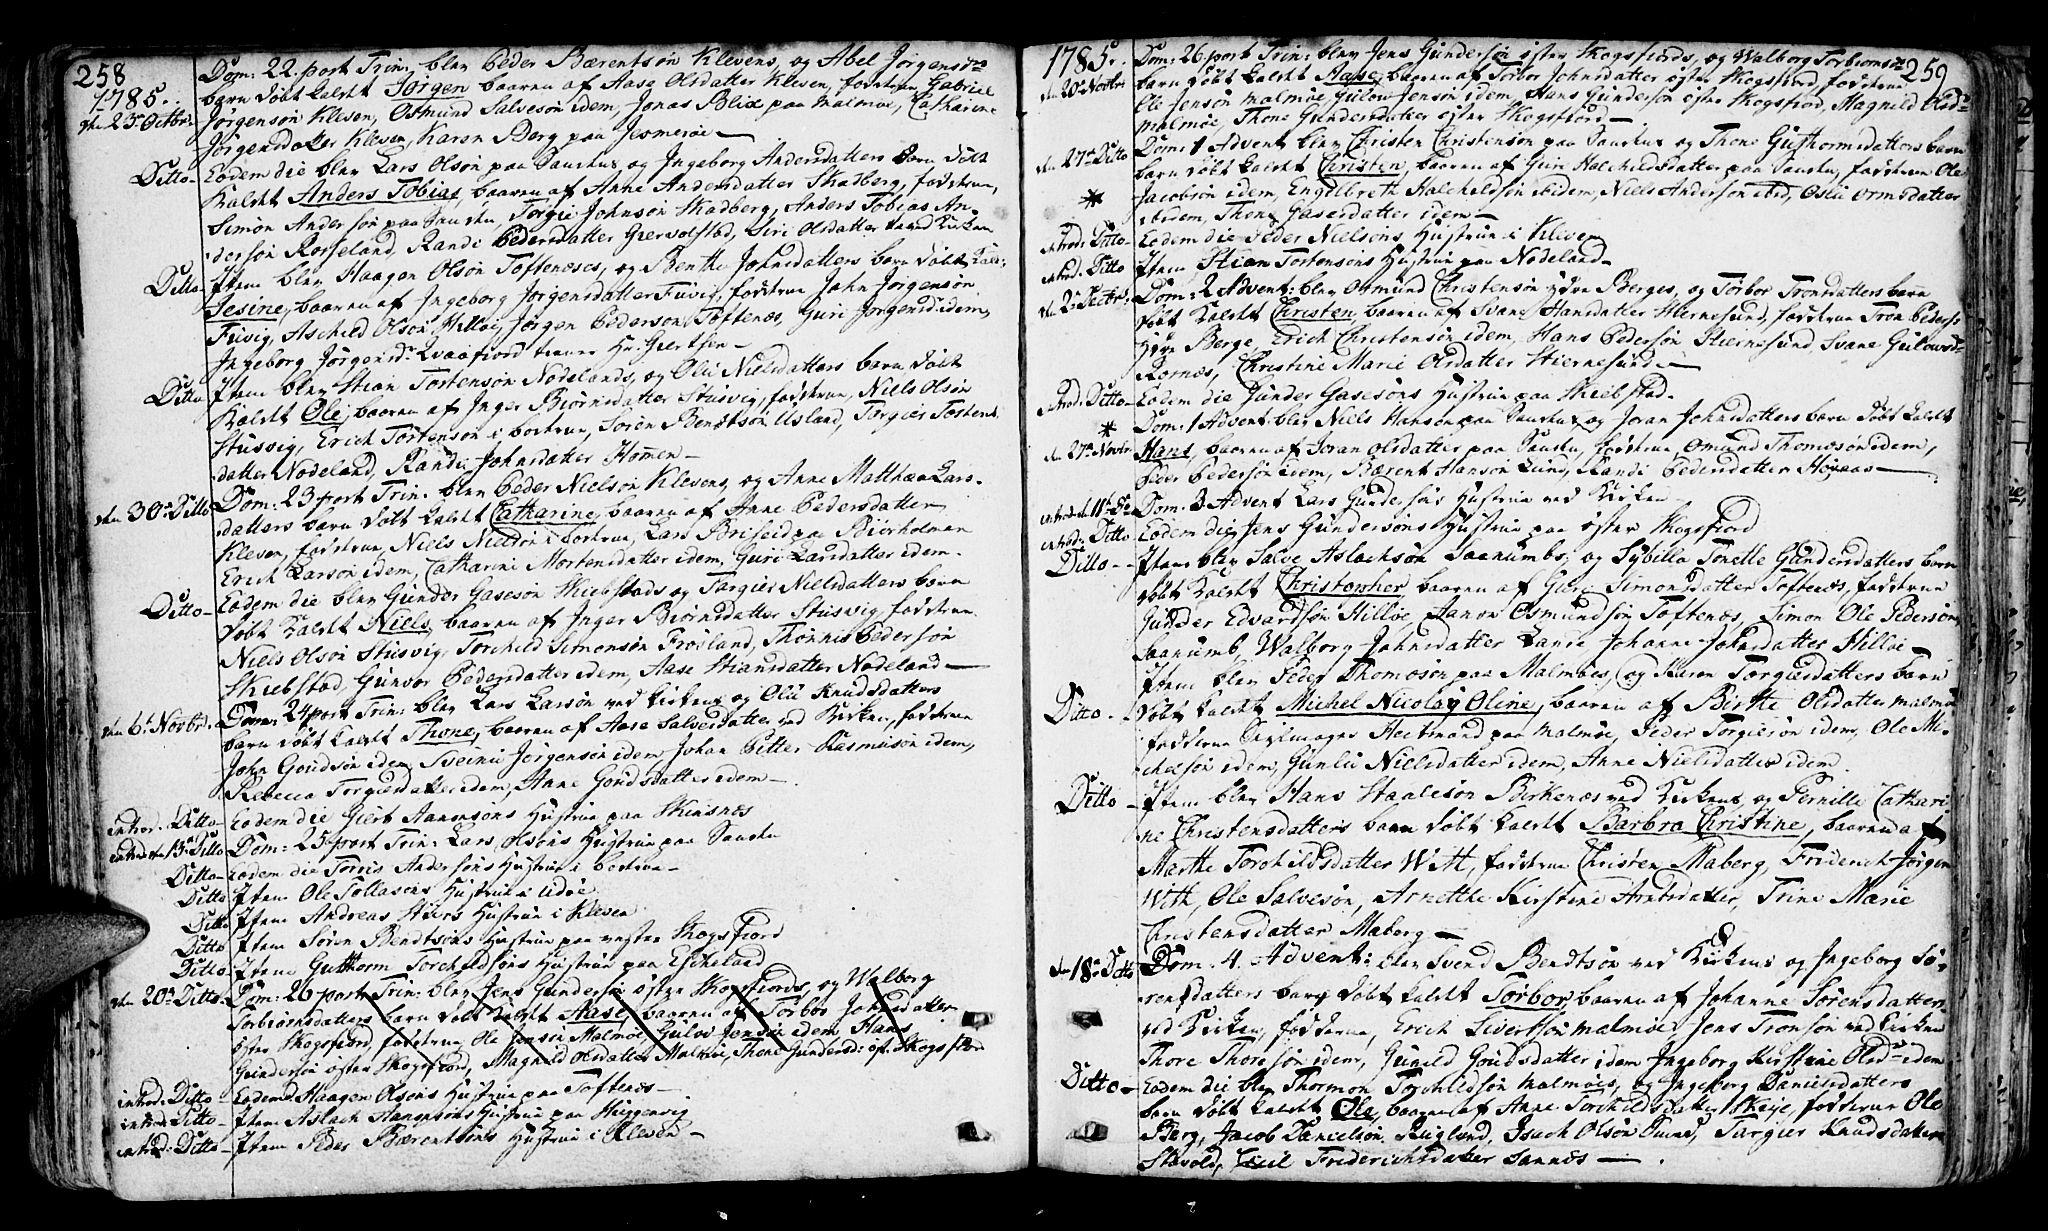 258
1785.
den 23de Octbr. Dom: 22. post Trin: blev Peder Bærentsøn Klevens, og Abel Jörgensdr
barn döbt kaldt Jörgen baaren af Aase Olsdatter Kleven, fadderne Gabriel
Jörgensøn Kleven, Osmund Salvesøn idem, Jonas Blix paa Malmöe, Catharine
Jörgensdatter Kleven, Karen Berg paa Jesmeröe—
Ditto— Eodem die blev Lars Olsøn paa Sanskus og Ingeborg Andersdatters barn döbt
kaldt Anders Tobias, baaren af Anne Andersdatter Skadberg, fadderne,
Simon Andersøn paa Sansku, Torgie Johnsøn Skadberg, Anders Tobias An-
dersøn Rosseland, Randi Pedersdatter Giervolstad, Siri Olsdatter ved Kirken
Ditto— Item blev Haagen Olsøn Toftenæses, og Benthe Johnsdatters barn döbt kaldt
Jesine, baaren af Ingeborg Jörgensdatter Fuvig, fadderne John Jörgensøn
Fuvig, Aschild Olsøn Hilloe, Jörgen Pedersøn Toftenæs, Guri Jörgensd: idem,
Ingeborg Jörgensdr Qvaafiord
Ditto Item blev Stian Torkensøn Nodelands, og Olu Nielsdatters barn döbt
kaldt Ole, baaren af Inger Biörnsdatter Stusvig, fadderne, Niels Olsøn
Stusvig, Erich Tortensøn i bortrue, Sören Bentsøn Usland, Torgier Torkens-
datter Nodeland, Randi Johnsdatter Homen—
den 30te Ditto Dom: 23 post Trin: blev Peder Nielsøn Klevens, og Anne Matthea Lars-
datters barn döbt kaldt Catharine, baaren af Anne Pedersdatter
Kleven, fadderne, Niels Nielsøn i bortrue, Lars Briseid paa Biörholmen
Erich Larsøn idem, Catharine Mortensdatter idem, Guri Larsdatter idem—
Ditto— Eodem die blev Gunder Gasesøn Skiebstads og Targier Nielsdatters barn
döbt kaldt Niels, baaren af Inger Biörnsdatter Stusvig, fadderne
Niels Olsøn Stusvig, Torchild Simonsøn Fröyland, Thommis Pedersøn
Skiebstad, Gunvor Pedersdatter idem, Aase Stiansdatter Nodeland—
den 6te Novbr. Dom: 24 post Trin: blev Lars Larsøn ved Kirkens og Olu Knudsdatters
barn döbt kaldt Thone, baaren af Aase Salvesdatter ved Kirken, fadderne
John Goudsøn idem, Sveinu Jörgensøn idem, Johan Petter Rasmusøn idem,
Rebecca Torgiersdatter idem, Anne Goudsdatter idem—
introd. Ditto— Eodem die Giert Aanensøns Hustrue paa Skinsnæs
introd. den 13de Ditto Dom: 25 post Trin: Lars Olsøns Hustrue paa Sansku
Ditto— Eodem die Torris Andersøns Hustrue i bortrue—
Ditto Item Ole Tollaksøns Hustrue i Udöe
Ditto Item Andreas Stiers Hustrue i Kleven
Ditto Item Sören Bendtsøns Hustrue paa vester Skogsfiord
Ditto— Item Gutthorm Torchildsøns Hustrue paa Eschelund
den 20de Ditto Dom: 26 post Trin: blev Jens Gundersøn öster Skogsfiords, og Walborg
Torbiörnsdatters barn döbt kaldt Aase, baaren af Torbor Johnsdatter
öster Skogsfiord, fadderne Ole Jensøn Malmöe, Gulov Jensøn idem, Hans
Gundersøn öster Skogsfiord, Magnild Olsdatter Malmöe, Thone Gundersd: öst. Skogsfiord
introd. Ditto Eodem Haagen Olsøns Hustrue paa Toftenæs—
introd. Ditto— Item Aslach Haagensøns Hustrue paa Huggenvig
introd: Ditto— Item Peder Bærentsøns Hustrue i Kleven—
259
1785.
den 20de Novbr Dom: 26 post Trin: blev Jens Gundersøn öster Skogsfiords, og Walborg Torbiornsdr
barn döbt kaldt Aase, baaren af Torbor Johnsdatter öster Skogsfiord, fadderne
Ole Jensøn Malmöe, Gulow Jensøn idem, Hans Gundersøn öster Skogsfiord, Magnild Olsdr
Malmöe, Thone Gundersdatter öster Skogsfiord—
den 27de Ditto Dom: 1 Advent blev Christen Christensøn paa Sanskus og Thone Guthormsdatters barn
barn döbt kaldt Christen, baaren af Guri Halcheldsdatter paa Sansku, fadderne Ole
Jacobsøn idem, Engelbreth Halcheldsøn ibidem, Niels Andersøn ibid, Oslu Ormsdatter
ibidem, Thone Gasesdatter idem—
introd: Ditto— Eodem die Peder Nielsøns Hustrue i Kleven
introd. Ditto Item Stian Tortensøns Hustrue paa Nodeland—
de 2. Dectbr: Dom: 2 Advent: blev Osmund Christensøn ydre Berges, og Torbor Tronsdatters barn
döbt kaldt Christen, baaren af Svane Hansdatter Hiernesund, fadderne Tron Peders-
ydre Berge, Erich Christensøn idem, Hans Pedersøn Hiernesund, Svane Gulowsdr
Rornæs, Christine Marie Olsdatter Stiernesund—
introd. Ditto— Eodem die Gunder Gasesøns Hustrue paa Skiebstad.
den 27de Novbr Dom: 1 Advent blev Niels Hansøn paa Sanskus og Joran Johnsdatters barn döbt kaldt
Hans, baaren af Joran Olsdatter paa Sansku, fadderne, Omund Thomæsøn idem,
Peder Pedersøn idem, Bærent Hansøn Lund, Randi Pedersdatter Höyaas—
introd. d 11te Do Dom: 3 Advent Lars Gundersøns Hustrue ved Kirken—
introd: Ditto Eodem die Jens Gundersøns Hustrue paa öster Skogsfiord
Ditto— Item blev Salve Aslachsøn Saanumbs, og Sybilla Tonette Gundersdatters barn
döbt kaldt Christopher, baaren af Guri Simonsdatter Toftenæs, fadderne
Gunder Edvardsøn Hilloe, Aanon Osmundsøn Toftenæs, Simon Ole Pedersøn
Saanumb, Walborg Johnsdatter Lande, Johanne Johnsdatter Hilloe—
Ditto. Item blev Peder Thomosøn paa Malmöes, og Karen Torgiersdatters barn
döbt kaldt Michel Nicolay Oline, baaren af Birthe Olsdatter Malmöe
fadderne Seylmager Heitmand paa Malmöe, Peder Torgiersøn idem, Ole Mi-
chelsøn idem, Gunlu Nielsdatter idem, Anne Nielsdatter idem.
Ditto— Item blev Hans Stanlesøn Birkenæs ved Kirkens, og Pernille Cathari-
ne Christensdatters barn döbt kaldt Barbro Christine, baaren af
Marthe Torchildsdatter With, fadderne Christen Maberg, Friderich Jörgen
With, Ole Salvesøn, Arnetthe Kirstine Arntsdatter, Trine Marie
Christensdatter Maberg—
den 18de Ditto Dom. 4. Advent: blev Svend Bendtsøn ved Kirkens og Ingeborg Sö-
rensdatters barn döbt kaldt Torbor, baaren af Johanne Sörensdatter
ved Kirken, fadderne, Erich Sivertsøn Malmöe, Jens Tronsøn ved Kirken
Thore Thoresøn idem, Gunild Goudsdatter idem Ingeborg Kirstine Olsdr idem
Ditto— Eodem die blev Thormon Torchildsøn Malmöes, og Ingeborg Danielsdatters
barn döbt kaldt Ole, baaren af Anne Torchildsdatter Skeje, fadderne Ole
Berg, Jacob Danielsøn Ruglund, Isach Olsøn, Targier Knudsdatter
Stövold, Cicil Friderichsdatter Sannæs—